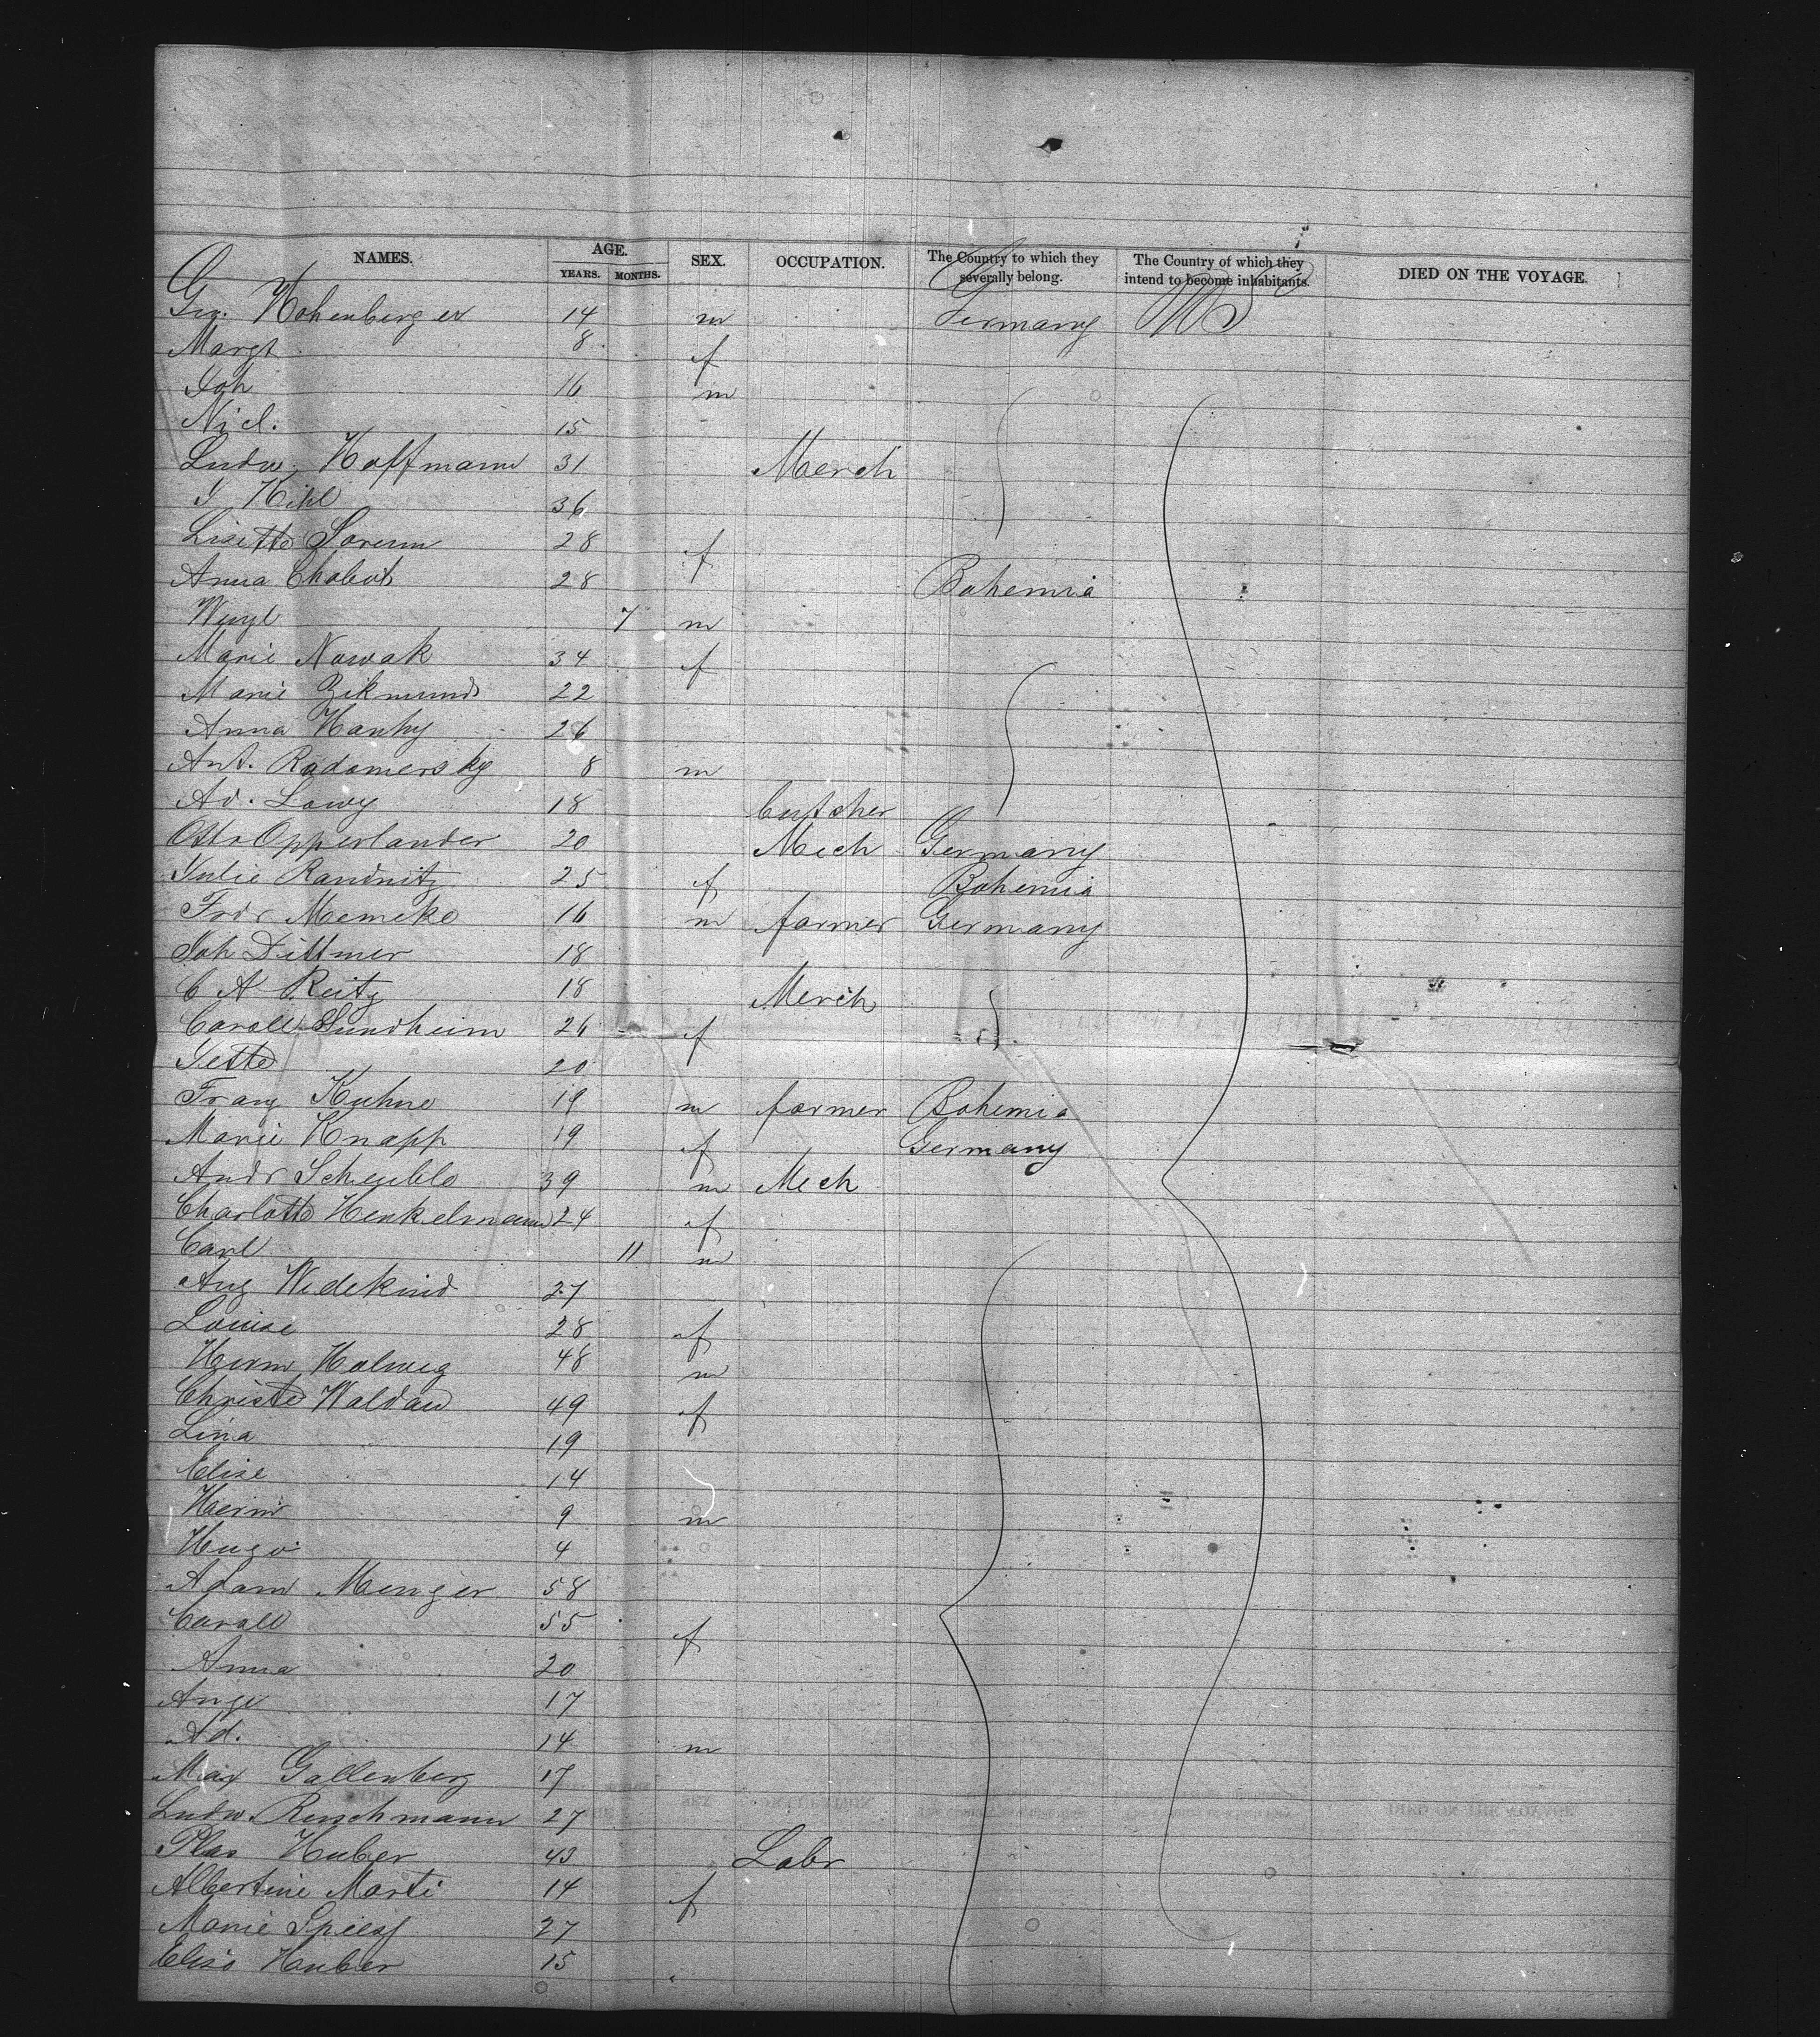 NAMES. AGE. YEARS. MONTHS. SEX. OCCUPATION. The Country to which they severally belong. The Country of which they intend to become inhabitants. DIED ON THE VOYAGE.
Geo. Hohenberger 14 m Germany US
Margt 8 f
Joh 16 m
Nicl. 15
Ludw. Hoffmann 31 Merch
J Kihl 36
Lisette Sorum 28 f
Anna Chabot 28 f Bohemia
7 m
Marie Nowak 34 f
Marie Zikmund 22
Anna Hanky 26
Ant. Radomersky 8 m
Ad. Lowy 18 butcher
Otto Opperlander 20 Mech Germany
Julie Raudnitz 25 f Bohemia
Fridr Memeke 16 m farmer Germany
Joh Dittmer 18
C A Reitz 18 Merch
Caroll Sundheim 26 f
Jette 20
Franz Kuhne 19 m farmer Bohemia
Marie Knapp 19 f Germany
Andr Scheuble 39 m Mech
Charlotte Henkelmann 24 f
Carl 11 m
Aug Wedekind 27
Louise 28 f
Herm Holweg 48 m
Christe Waldau 49 f
Lina 19
Elise 14
Herm 9 m
Hugo 4
Adam Menger 58
Caroll 55 f
Anna 20
Auge 17
Ad. 14 m
Max Gallenberg 17
Ludw. Reuschmann 27
Plas Huber 43 Labr
Albertine Marti 14 f
Marie Spiess 27
Elise Huber 15